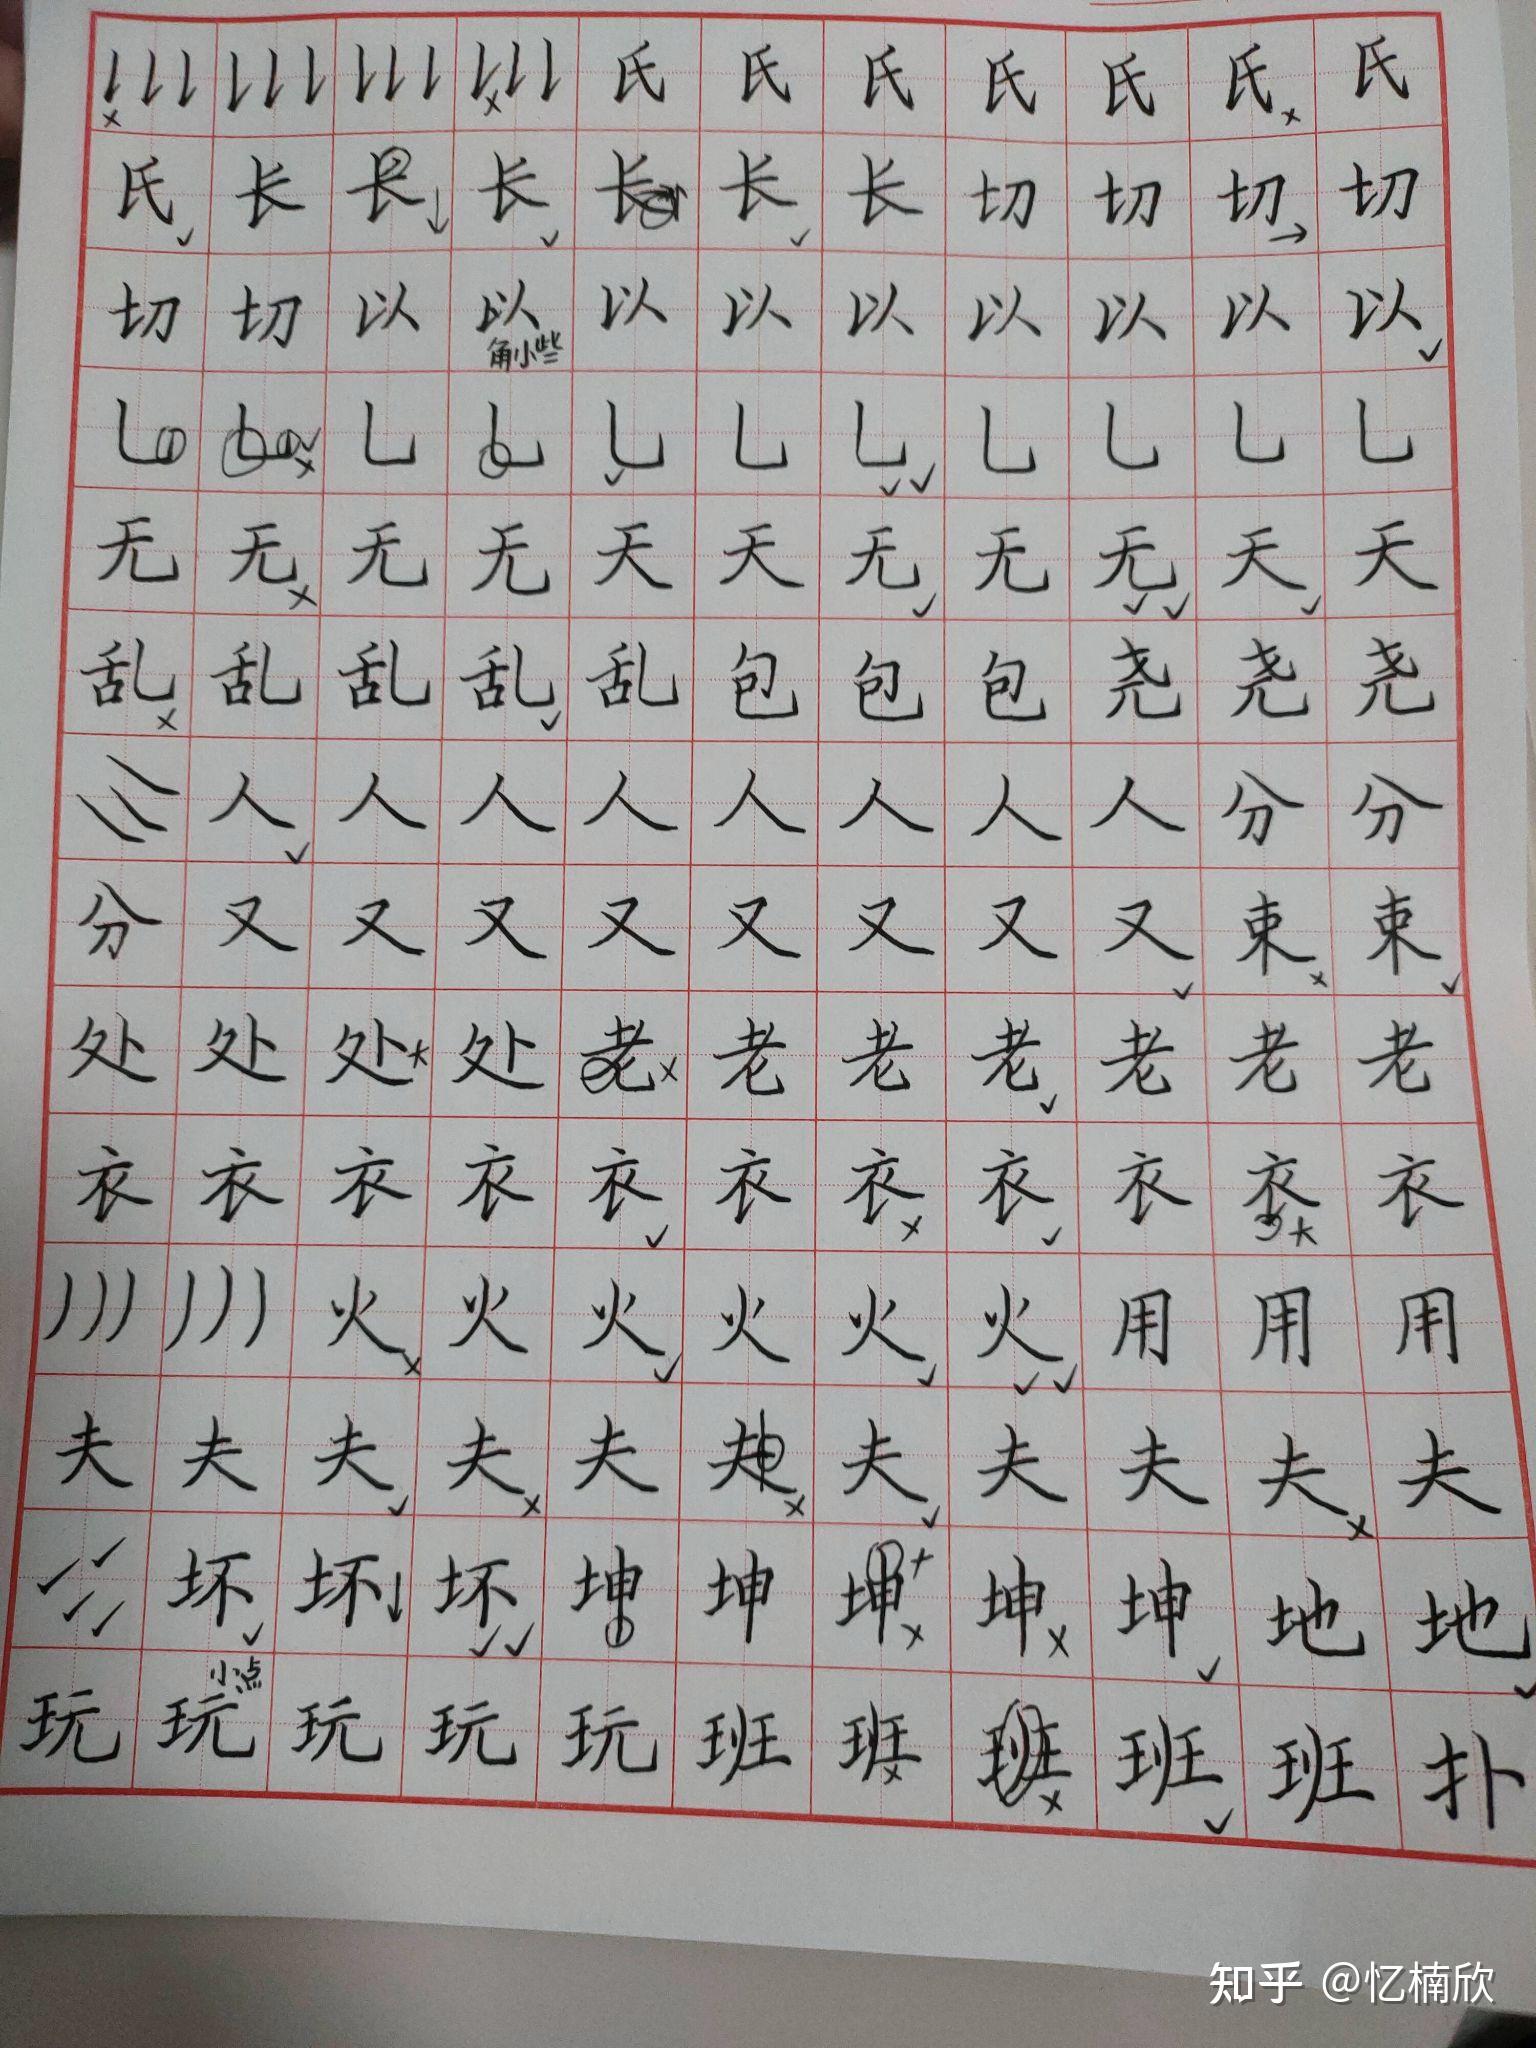 氏 氏 氏 氏 氏 氏 氏
氏 长 长 长 长 长 长 切 切 切 切
切 切 以 以 以 以 以 以 以 以 以
角小些
无 无 无 无 天 天 无 无 无 天 天
乱 乱 乱 乱 乱 包 包 包 尧 尧 尧
人 人 人 人 人 人 人 人 分 分
分 又 又 又 又 又 又 又 又 束 束
处 处 处 处 老 老 老 老 老 老 老
衣 衣 衣 衣 衣 衣 衣 衣 衣 衣 衣
火 火 火 火 火 火 用 用 用
夫 夫 夫 夫 夫 夫 夫 夫 夫 夫 夫
坏 坏 坏 坤 坤 坤 坤 坤 地 地
小点
玩 玩 玩 玩 玩 班 班 班 班 班 扑
知乎 @忆楠欣